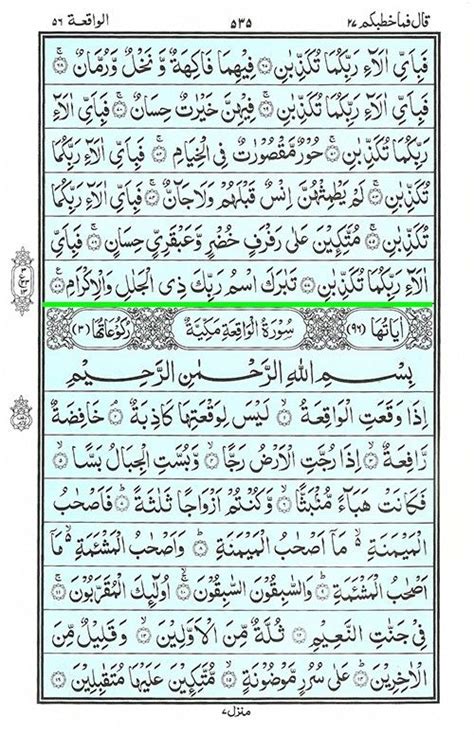 قال فما خطبكم ٢٧ ٥٣٥ الواقعة ٥٦
فَبِاَيِّ اٰلَآءِ رَبِّكُمَا تُكَذِّبٰنِ ﴿٦٧﴾ فِيْهِمَا فَاكِهَةٌ وَّ نَخْلٌ وَّرُمَّانٌ ﴿٦٨﴾
فَبِاَيِّ اٰلَآءِ رَبِّكُمَا تُكَذِّبٰنِ ﴿٦٩﴾ فِيْهِنَّ خَيْرٰتٌ حِسَانٌ ﴿٧٠﴾ فَبِاَيِّ اٰلَآءِ
رَبِّكُمَا تُكَذِّبٰنِ ﴿٧١﴾ حُوْرٌ مَّقْصُوْرٰتٌ فِى الْخِيَامِ ﴿٧٢﴾ فَبِاَيِّ اٰلَآءِ رَبِّكُمَا
تُكَذِّبٰنِ ﴿٧٣﴾ لَمْ يَطْمِثْهُنَّ اِنْسٌ قَبْلَهُمْ وَلَا جَآنٌّ ﴿٧٤﴾ فَبِاَيِّ اٰلَآءِ رَبِّكُمَا
تُكَذِّبٰنِ ﴿٧٥﴾ مُتَّكِـِٕيْنَ عَلٰى رَفْرَفٍ خُضْرٍ وَّعَبْقَرِيٍّ حِسَانٍ ﴿٧٦﴾ فَبِاَيِّ
اٰلَآءِ رَبِّكُمَا تُكَذِّبٰنِ ﴿٧٧﴾ تَبٰرَكَ اسْمُ رَبِّكَ ذِى الْجَلٰلِ وَالْاِكْرَامِ ﴿٧٨﴾
اٰيَاتُهَا (٩٦) سُوْرَةُ الْوَاقِعَةِ مَكِّيَّةٌ رُكُوْعَاتُهَا (٣)
بِسْمِ اللّٰهِ الرَّحْمٰنِ الرَّحِيْمِ
اِذَا وَقَعَتِ الْوَاقِعَةُ ﴿١﴾ لَيْسَ لِوَقْعَتِهَا كَاذِبَةٌ ﴿٢﴾ خَافِضَةٌ
رَّافِعَةٌ ﴿٣﴾ اِذَا رُجَّتِ الْاَرْضُ رَجًّا ﴿٤﴾ وَّبُسَّتِ الْجِبَالُ بَسًّا ﴿٥﴾
فَكَانَتْ هَبَآءً مُّنْۢبَثًّا ﴿٦﴾ وَّكُنْتُمْ اَزْوَاجًا ثَلٰثَةً ﴿٧﴾ فَاَصْحٰبُ
الْمَيْمَنَةِ مَآ اَصْحٰبُ الْمَيْمَنَةِ ﴿٨﴾ وَاَصْحٰبُ الْمَشْـَٔمَةِ مَآ
اَصْحٰبُ الْمَشْـَٔمَةِ ﴿٩﴾ وَالسّٰبِقُوْنَ السّٰبِقُوْنَ ﴿١٠﴾ اُولٰٓئِكَ الْمُقَرَّبُوْنَ ﴿١١﴾
فِيْ جَنّٰتِ النَّعِيْمِ ﴿١٢﴾ ثُلَّةٌ مِّنَ الْاَوَّلِيْنَ ﴿١٣﴾ وَقَلِيْلٌ مِّنَ
الْاٰخِرِيْنَ ﴿١٤﴾ عَلٰى سُرُرٍ مَّوْضُوْنَةٍ ﴿١٥﴾ مُّتَّكِـِٕيْنَ عَلَيْهَا مُتَقٰبِلِيْنَ ﴿١٦﴾
منزل ٧